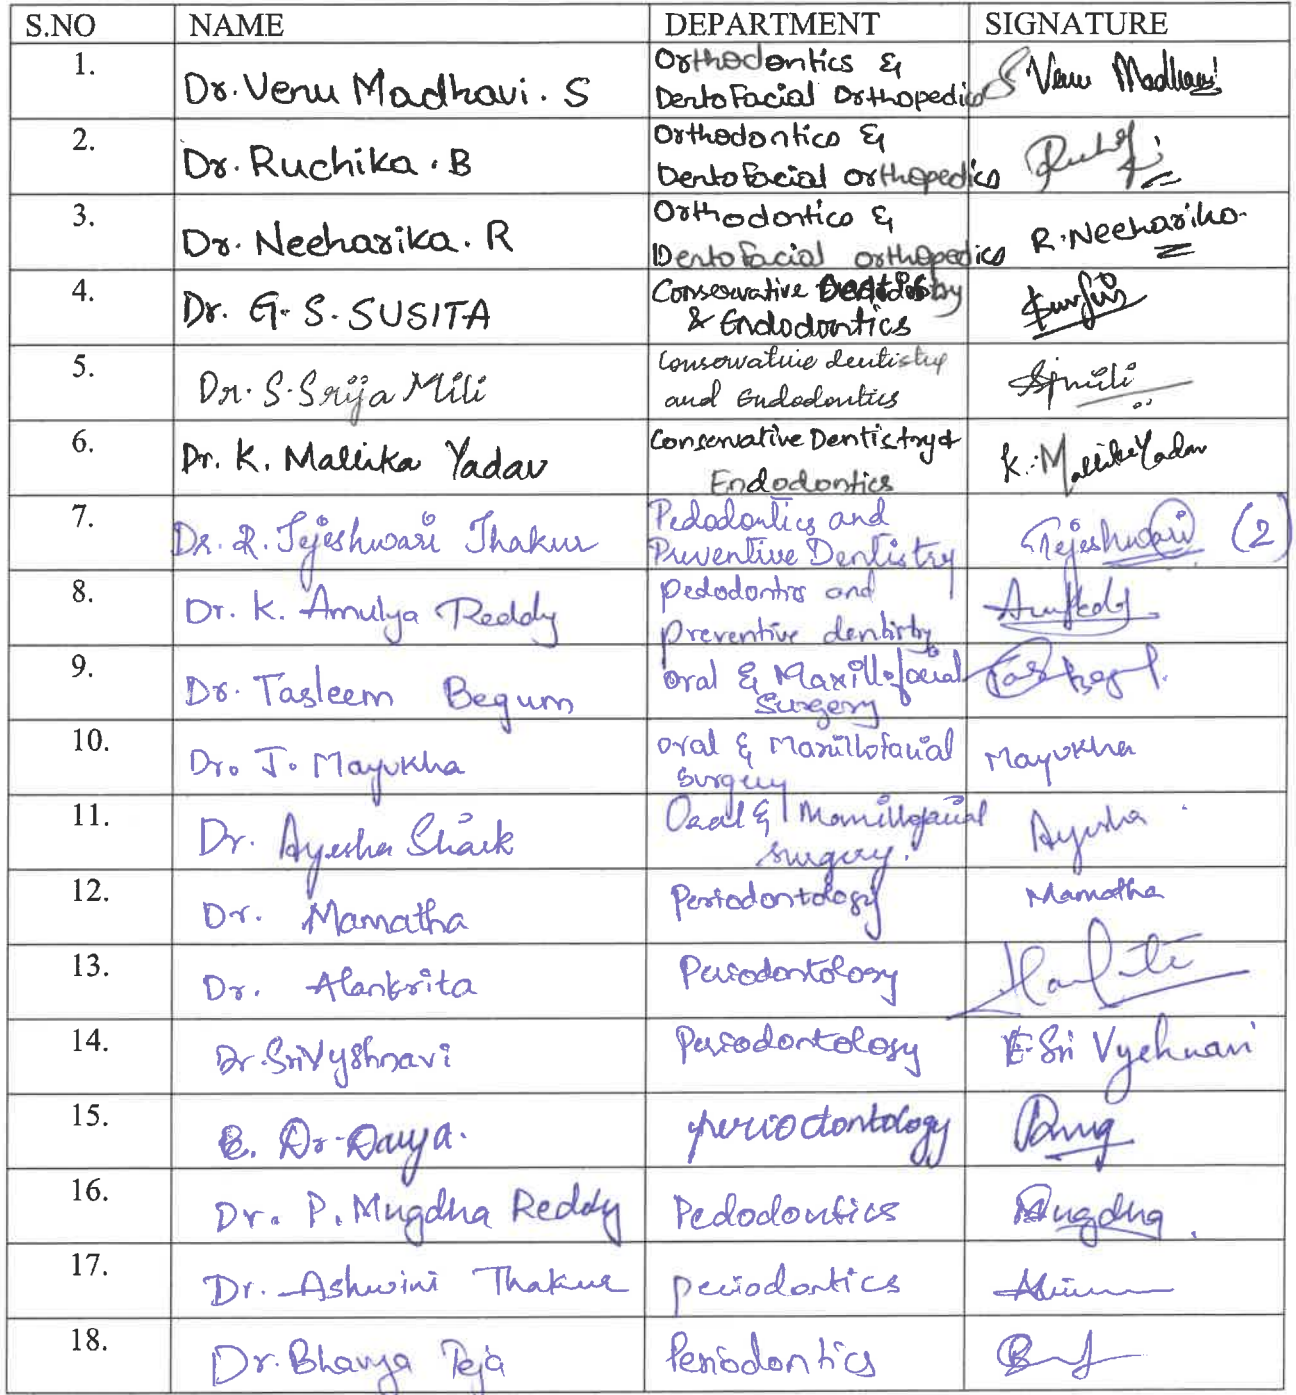 S.NO NAME DEPARTMENT SIGNATURE
1. Dr. Venu Madhavi. S Orthodontics &
Dentofacial Orthopedics S Venu Madhavi
2. Dr. Ruchika. B Orthodontics &
Dentofacial orthopedics
3. Dr. Neeharika. R Orthodontics &
Dentofacial orthopedics R. Neeharika.
4. Dr. G. S. SUSITA Conservative Dentistry
& Endodontics
5. Dr. S. Srija Mili Conservative dentistry
and Endodontics
6. Dr. K. Mallika Yadav Conservative Dentistry &
Endodontics K. Mallika Yadav
7. Dr. R. Tejeshwari Thakur Pedodontics and
Preventive Dentistry Tejeshwari (2)
8. Dr. K. Amulya Reddy pedodontics and
preventive dentistry
9. Dr. Tasleem Begum Oral & Maxillofacial
Surgery
10. Dr. J. Mayukha oral & Maxillofacial
Surgery Mayukha
11. Dr. Ayesha Shaik Oral & Maxillofacial
Surgery. Ayesha
12. Dr. Mamatha Periodontology Mamatha
13. Dr. Alankrita Periodontology
14. Dr. Sri Vyshnavi Periodontology E. Sri Vyshnavi
15. Dr. periodontology
16. Dr. P. Mugdha Reddy Pedodontics Mugdha.
17. Dr. Ashwini Thakur periodontics
18. Dr. Bhavya Teja Periodontics